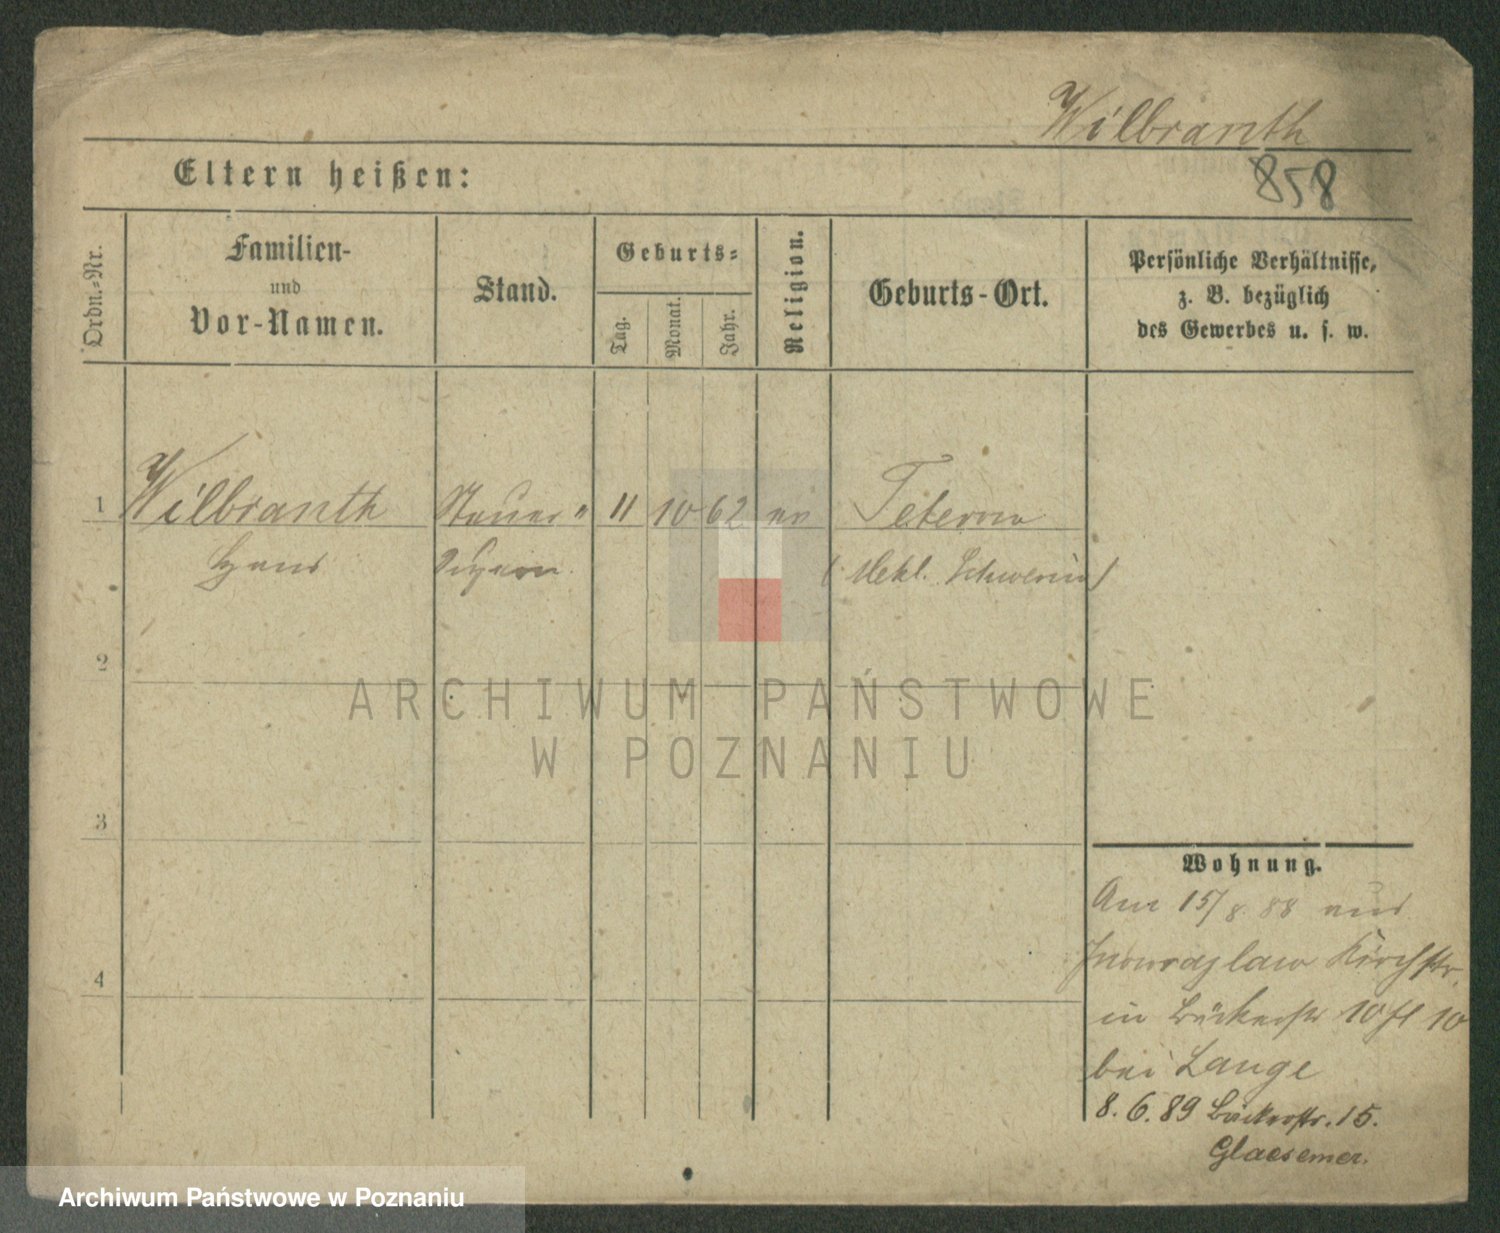 Wilbranth
858
Eltern heißen:
Ordn.-Nr.
Familien-
und
Vor-Namen.
Stand.
Geburts-
Tag.
Monat.
Jahr.
Religion.
Geburts-Ort.
Persönliche Verhältnisse,
z. B. bezüglich
des Gewerbes u. s. w.
1 Wilbranth Steuer " 11 10 62 ev Teterow
Hans (Mekl. Schwerin)
2
3
4
ARCHIWUM PAŃSTWOWE
W POZNANIU
Wohnung.
Am 15/8 88 aus
Inowrazlaw Kirchstr.
in Bäckerstr 10 10
bei Lange
8. 6. 89 Bäckerstr. 15.
Glaesemer.
Archiwum Państwowe w Poznaniu